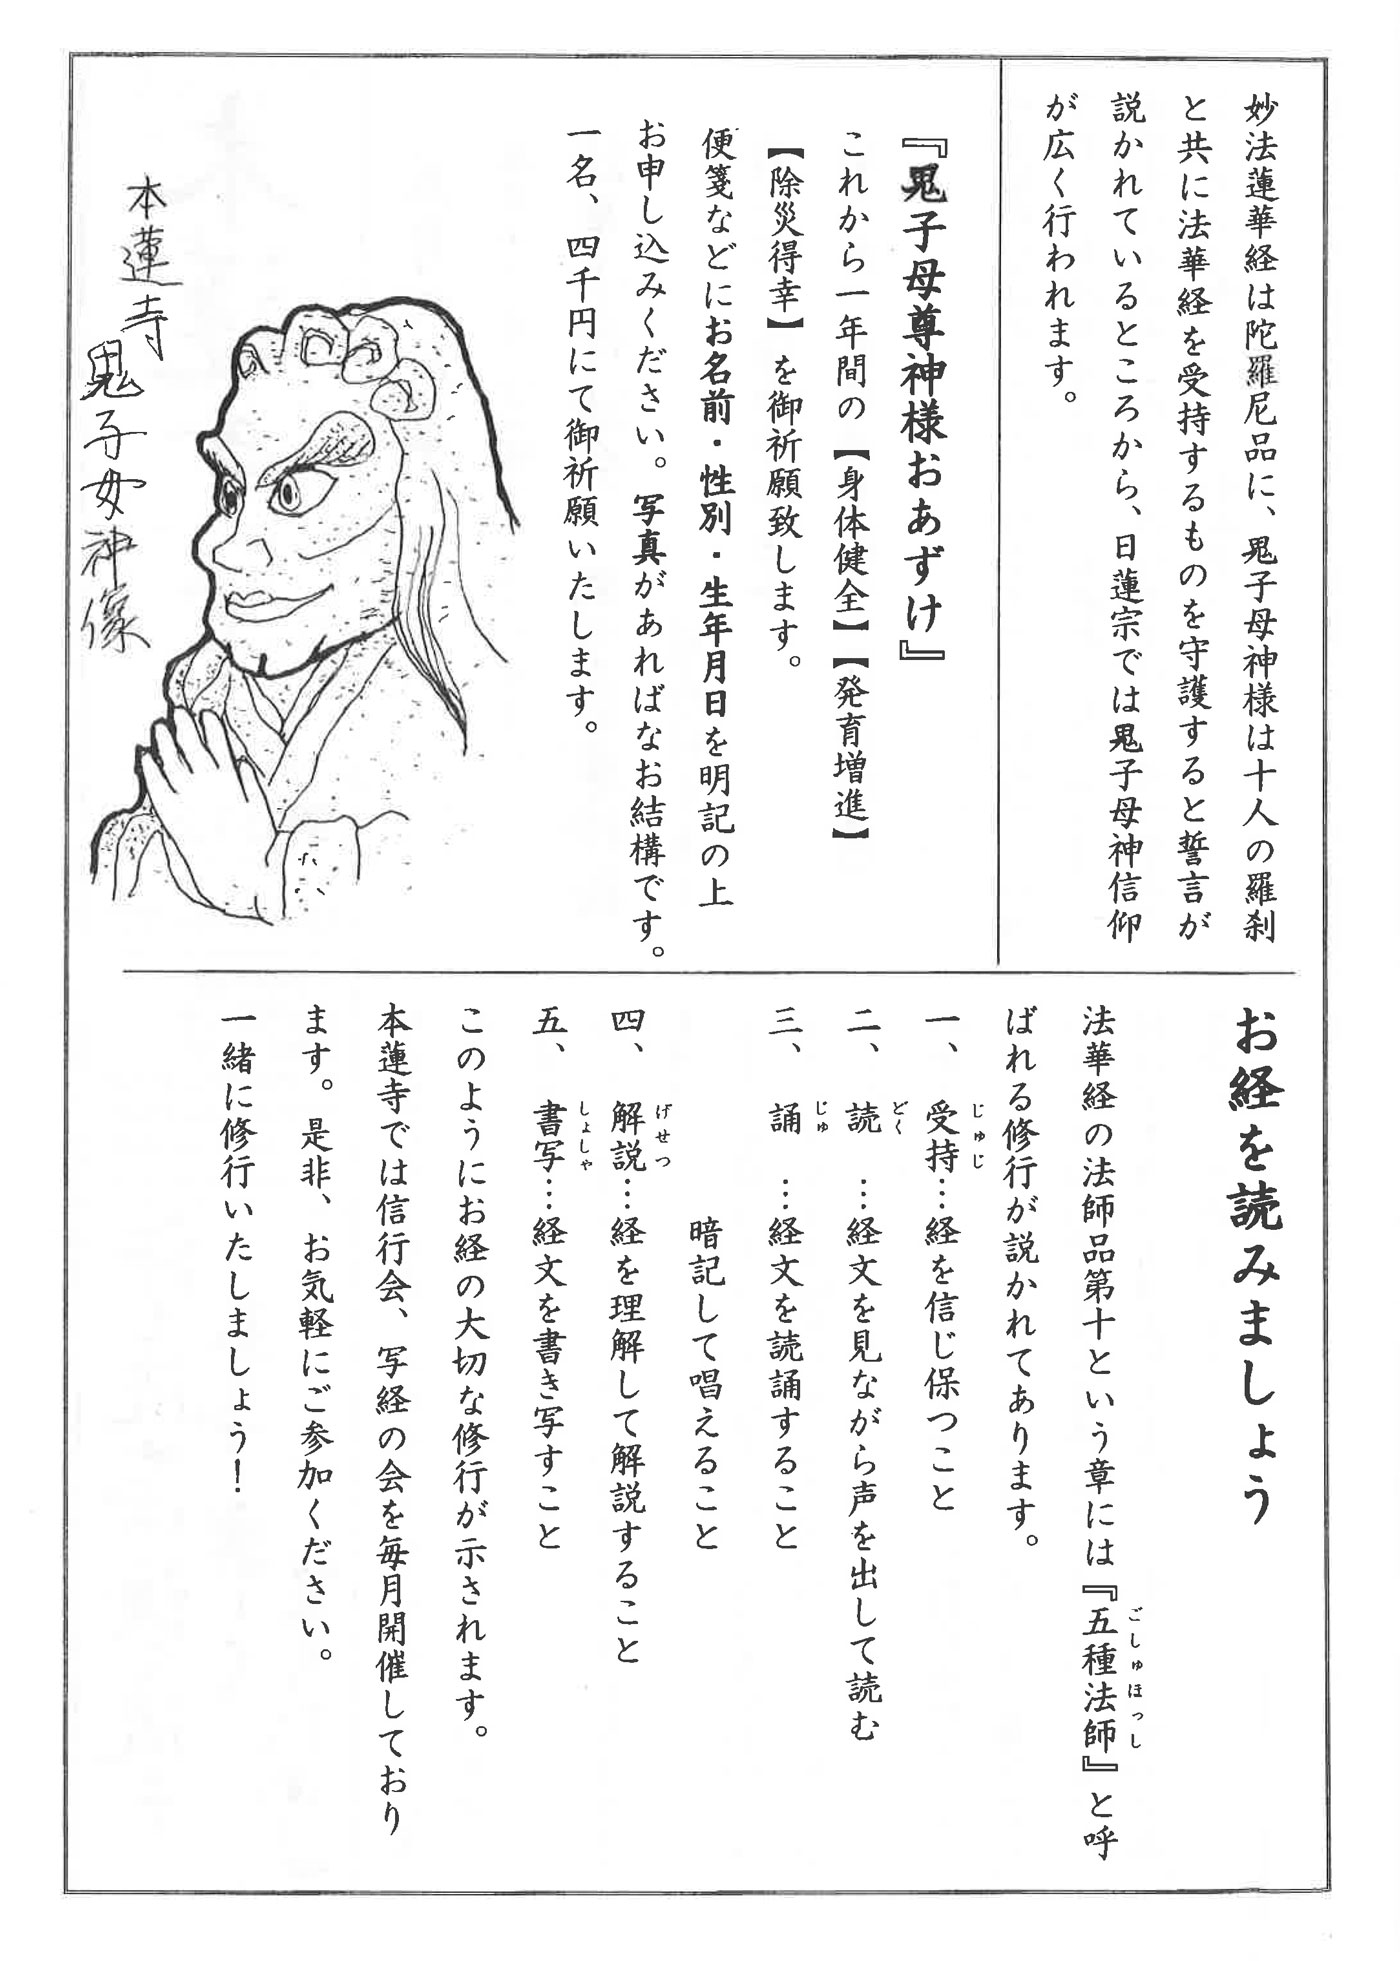 妙法蓮華経は陀羅尼品に、鬼子母神様は十人の羅刹
と共に法華経を受持するものを守護すると誓言が
説かれているところから、日蓮宗では鬼子母神信仰
が広く行われます。
『鬼子母尊神様おあずけ』
これから一年間の【身体健全】【発育増進】
【除災得幸】を御祈願致します。
便箋などにお名前・性別・生年月日を明記の上
お申し込みください。写真があればなお結構です。
一名、四千円にて御祈願いたします。
本蓮寺
鬼子母神像
お経を読みましょう
法華経の法師品第十という章には『五種法師』と呼
ごしゅほっし
ばれる修行が説かれてあります。
一、受持…経を信じ保つこと
じゅじ
二、読　…経文を見ながら声を出して読む
どく
三、誦　…経文を読誦すること
じゅ
暗記して唱えること
四、解説…経を理解して解説すること
げせつ
五、書写…経文を書き写すこと
しょしゃ
このようにお経の大切な修行が示されます。
本蓮寺では信行会、写経の会を毎月開催しており
ます。是非、お気軽にご参加ください。
一緒に修行いたしましょう！